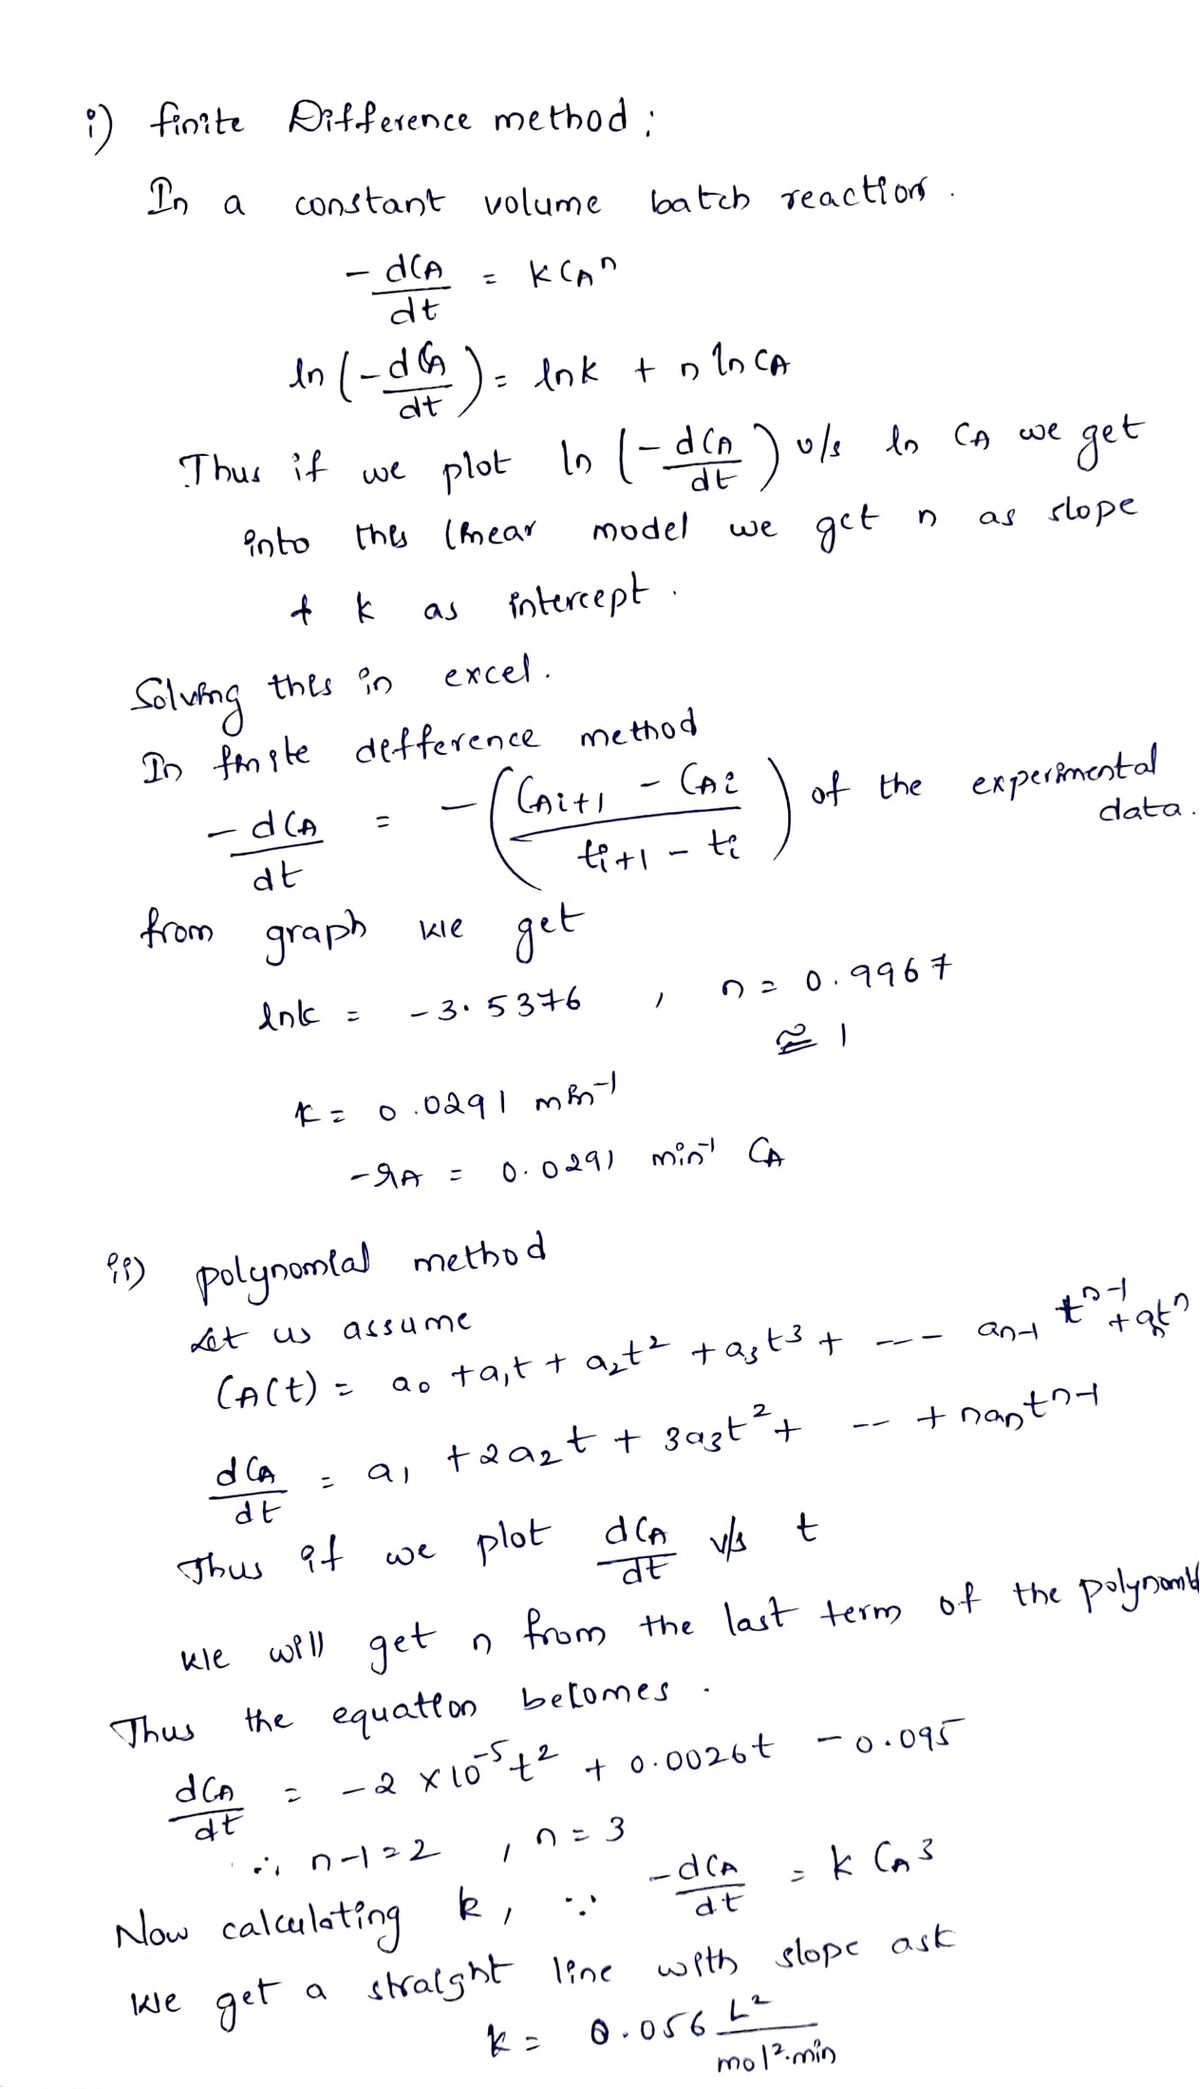 i) finite Difference method :
In a constant volume batch reaction .
- dCA/dt = k CA^n
ln (- dCA/dt) = lnk + n ln CA
Thus if we plot ln (- dCA/dt) v/s ln CA we get
into this linear model we get n as slope
+ k as intercept .
Solving this in excel .
In finite defference method
- dCA/dt = - (CAi+1 - CAi / ti+1 - ti) of the experimental data .
from graph we get
lnk = -3.5376 , n = 0.9967
≅ 1
k = 0.0291 min^-1
-rA = 0.0291 min^-1 CA
ii) polynomial method
Let us assume
CA(t) = a0 + a1t + a2t^2 + a3t^3 + --- an-1 t^n-1 + ant^n
dCA/dt = a1 + 2a2t + 3a3t^2 + -- + nant^n-1
Thus if we plot dCA/dt v/s t
we will get n from the last term of the
Thus the equation becomes .
dCA/dt = -2 × 10^-5 t^2 + 0.0026t - 0.095
∴ n-1 = 2 , n = 3
Now calculating k, ∵ - dCA/dt = k CA^3
we get a straight line with slope ask
k = 0.056 L^2/mol^2.min